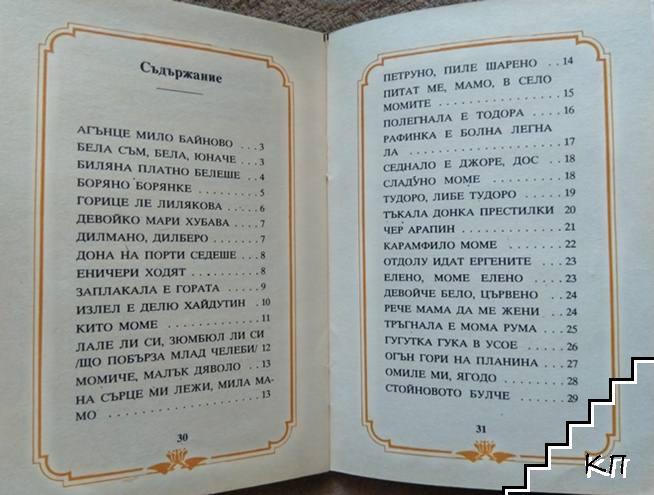 Съдържание
АГЪНЦЕ МИЛО БАЙНОВО . . 3
БЕЛА СЪМ, БЕЛА, ЮНАЧЕ . . 3
БИЛЯНА ПЛАТНО БЕЛЕШЕ . . 4
БОРЯНО БОРЯНКЕ . . . . . . . . . 5
ГОРИЦЕ ЛЕ ЛИЛЯКОВА . . . . 6
ДЕВОЙКО МАРИ ХУБАВА . . . 7
ДИЛМАНО, ДИЛБЕРО . . . . . . 7
ДОНА НА ПОРТИ СЕДЕШЕ . . 8
ЕНИЧЕРИ ХОДЯТ . . . . . . . . . . 8
ЗАПЛАКАЛА Е ГОРАТА . . . . . 9
ИЗЛЕЛ Е ДЕЛЮ ХАЙДУТИН . 10
КИТО МОМЕ . . . . . . . . . . . . . 11
ЛАЛЕ ЛИ СИ, ЗЮМБЮЛ ЛИ СИ
/ЩО ПОБЪРЗА МЛАД ЧЕЛЕБИ/ 12
МОМИЧЕ, МАЛЪК ДЯВОЛО . . 13
НА СЪРЦЕ МИ ЛЕЖИ, МИЛА МА-
МО . . . . . . . . . . . . . . . . . . . . 13
30
ПЕТРУНО, ПИЛЕ ШАРЕНО . . 14
ПИТАТ МЕ, МАМО, В СЕЛО
МОМИТЕ . . . . . . . . . . . . . . . . 15
ПОЛЕГНАЛА Е ТОДОРА . . . . 16
РАФИНКА Е БОЛНА ЛЕГНА
ЛА . . . . . . . . . . . . . . . . . . . . . 17
СЕДНАЛО Е ДЖОРЕ, ДОС . . . 18
СЛАДУНО МОМЕ . . . . . . . . . . 18
ТУДОРО, ЛИБЕ ТУДОРО . . . . 19
ТЪКАЛА ДОНКА ПРЕСТИЛКИ 20
ЧЕР АРАПИН . . . . . . . . . . . . . 21
КАРАМФИЛО МОМЕ . . . . . . . 22
ОТДОЛУ ИДАТ ЕРГЕНИТЕ . . . 23
ЕЛЕНО, МОМЕ ЕЛЕНО . . . . . . 23
ДЕВОЙЧЕ БЕЛО, ЦЪРВЕНО . . 24
РЕЧЕ МАМА ДА МЕ ЖЕНИ . . 24
ТРЪГНАЛА Е МОМА РУМА . . . 25
ГУГУТКА ГУКА В УСОЕ . . . . . 26
ОГЪН ГОРИ НА ПЛАНИНА . . . 27
ОМИЛЕ МИ, ЯГОДО . . . . . . . . 28
СТОЙНОВОТО БУЛЧЕ . . . . . . 29
31
КП